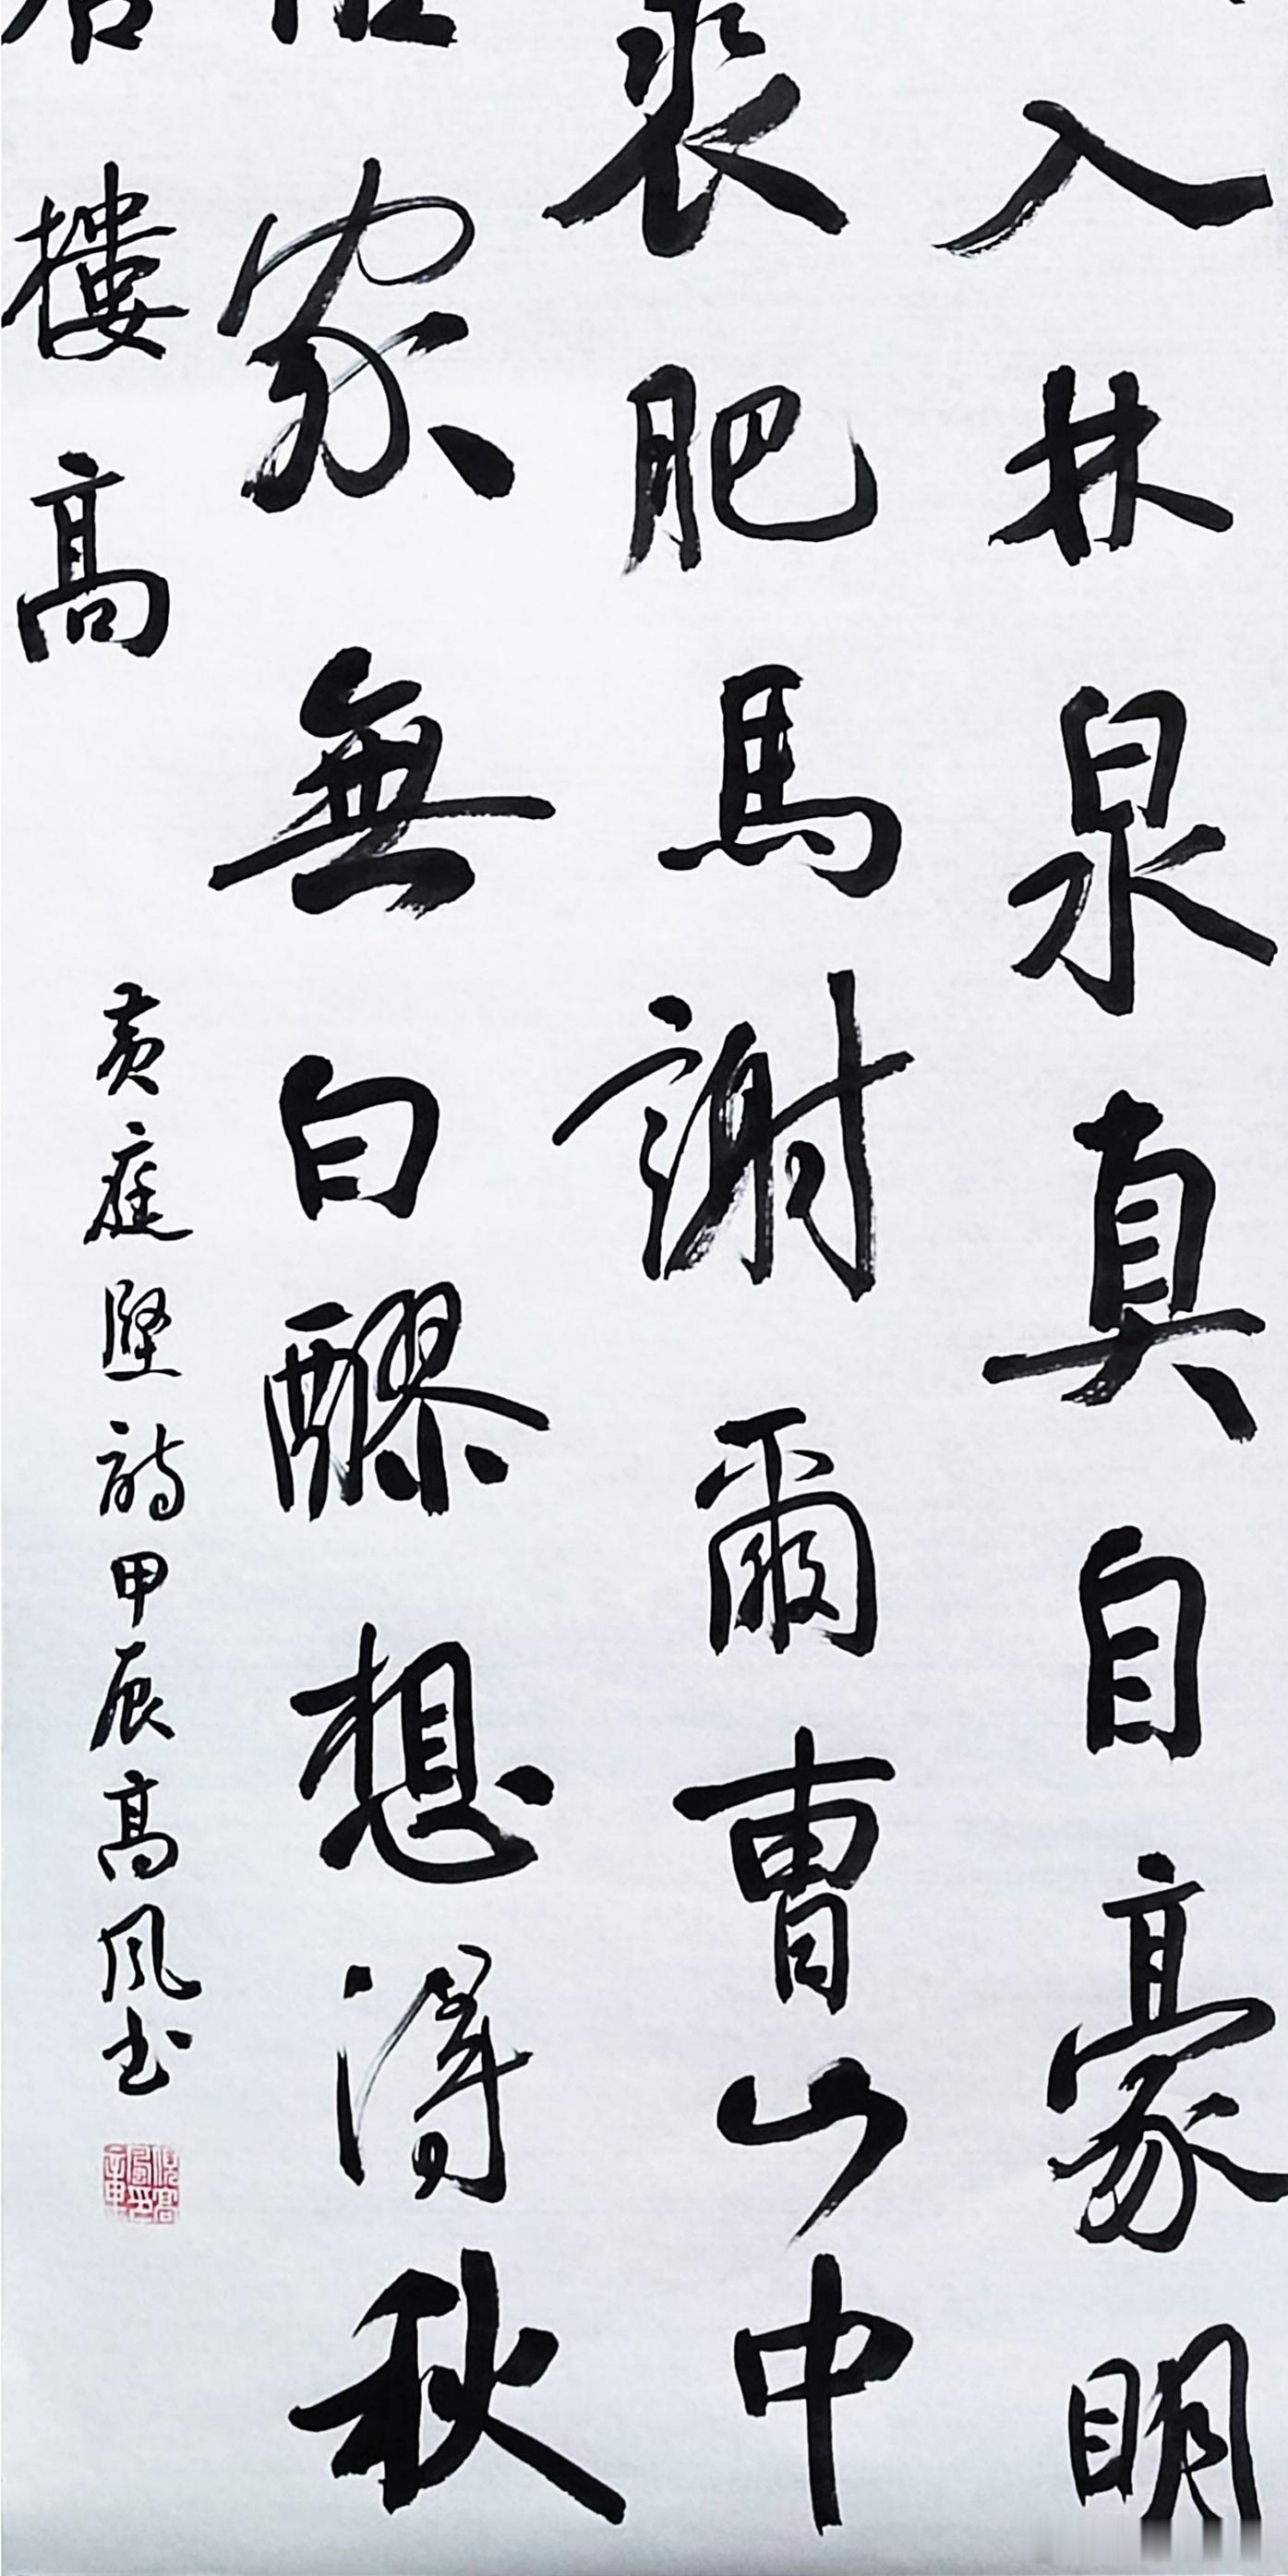 入林泉真自豪明
裘肥馬謝爾曹山中
家無白醪想得秋
樓高
黃庭堅詩甲辰高風书